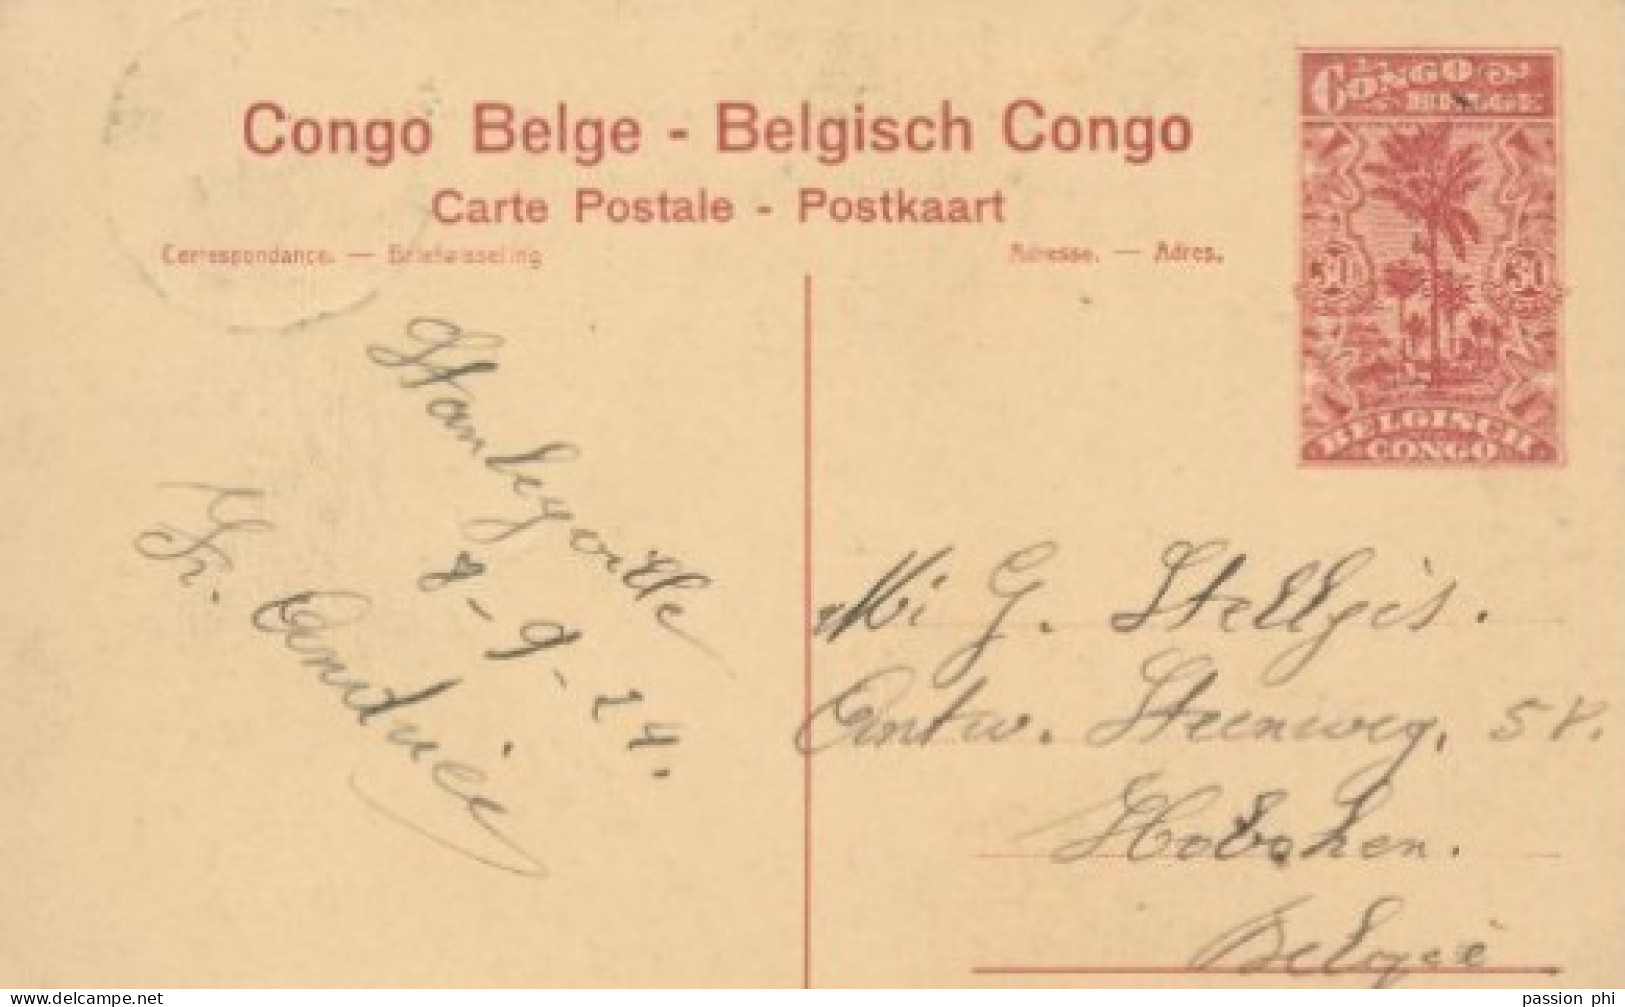 Congo Belge - Belgisch Congo
Carte Postale - Postkaart
Correspondance. — Briefwisseling
Adresse. — Adres.
CONGO
BELGE
30 30
BELGISCH
CONGO
Stanleyville
8-9-24.
Fr. Andrié
G. Stellgis.
Antw. Steenweg, 58.
Hoboken.
België
www.delcampe.net
passion phi